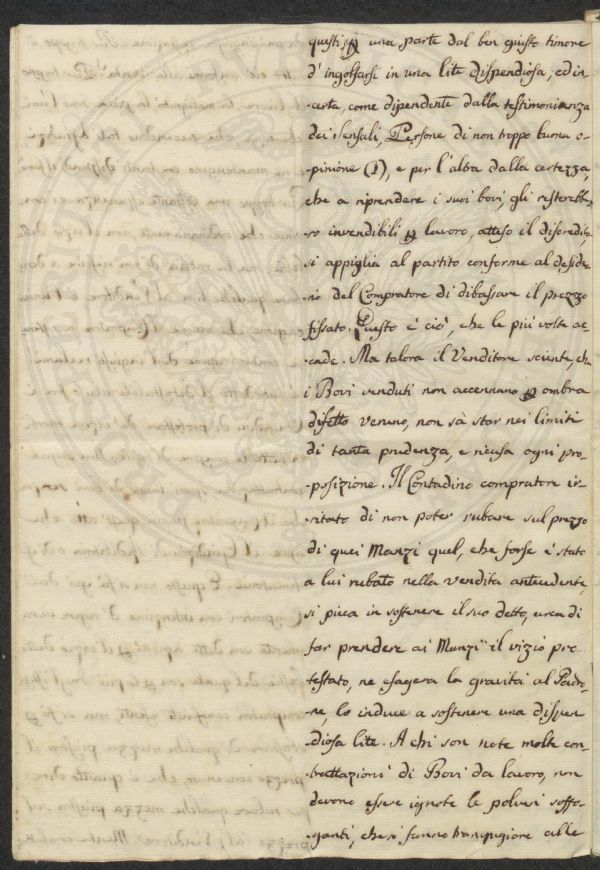 questi, ꝑ una parte dal ben giusto timore
d'ingolfarsi in una lite dispendiosa, ed in-
certa, come dipendente dalla testimonianza
dei Sensali, Persone di non troppo buona o-
-pinione (1), e per l'altra dalla certezza,
che a riprendere i suoi bovi, gli resterebbe-
-ro invendibili ꝑ lavoro, atteso il discredito,
si appiglia al partito conforme al deside-
-rio del Compratore di dibassare il prezzo
fissato. Questo è ciò, che le più volte ac-
-cade. Ma talora il Venditore sciente, che
i Bovi venduti non accennano ꝑ ombra
difetto veruno, non sà star nei limiti
di tanta prudenza, e ricusa ogni pro-
-posizione. Il Contadino compratore ir-
-ritato di non poter rubare sul prezzo
di quei Manzi quel, che forse è stato
a lui rubato nella vendita antecedente,
si picca in sostenere il suo detto, cerca di
far prendere ai Manzi il vizio pro-
-testato, ne esagera la gravità al Padro-
-ne, lo induce a sostenere una dispen-
-diosa lite. A chi son note molte con-
-trattazioni di Bovi da lavoro, non
devono essere ignote le polveri soffo-
-ganti, che si fanno trangugiare alle